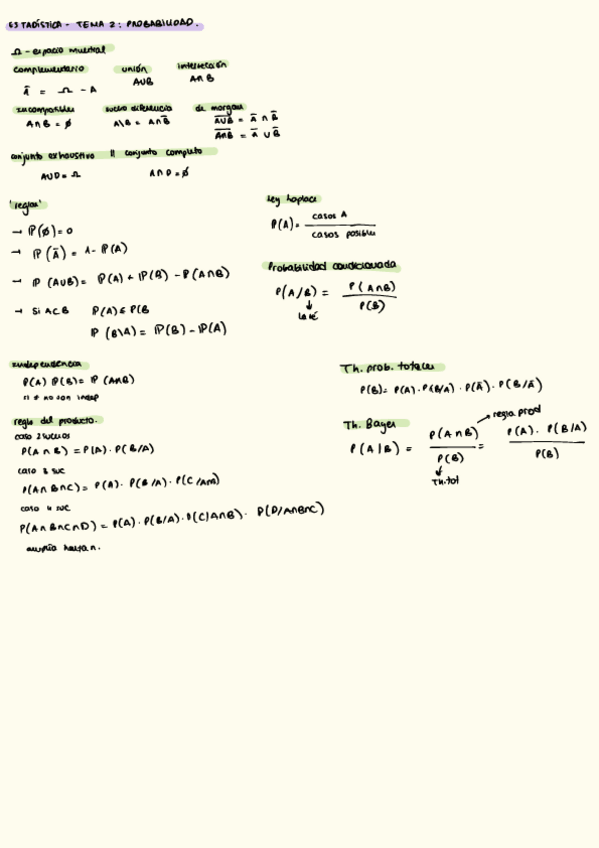 ESTADÍSTICA - TEMA 2: PROBABILIDAD.
Ω - espacio muestral
complementario unión intersección
Ā = Ω - A A∪B A∩B
incompatibles suceso diferencia de morgan
A∩B = ∅ A\B = A∩B̅ \overline{A∪B} = A̅ ∩ B̅
\overline{A∩B} = A̅ ∪ B̅
conjunto exhaustivo || conjunto completo
A∪D = Ω A∩D = ∅
'reglas'
→ P(∅) = 0
→ P(A̅) = 1 - P(A)
→ P(A∪B) = P(A) + P(B) - P(A∩B)
→ Si A⊂B P(A) ≤ P(B
P(B\A) = P(B) - P(A)
Ley Laplace
P(A) = casos A / casos posibles
Probabilidad condicionada
P(A/B) = P(A∩B) / P(B)
↓
independencia
P(A) P(B) = P(A∩B)
si ≠ no son indep
regla del producto.
caso 2 sucesos
P(A∩B) = P(A) · P(B/A)
caso 3 suc
P(A∩B∩C) = P(A) · P(B/A) · P(C/A∩B)
caso 4 suc
P(A∩B∩C∩D) = P(A) · P(B/A) · P(C/A∩B) · P(D/A∩B∩C)
hasta n.
Th. prob. totales
P(B) = P(A) · P(B/A) · P(A̅) · P(B/A̅)
Th. Bayes
→ regla prod
P(A|B) = P(A∩B) / P(B) = P(A) · P(B/A) / P(B)
↓
Th. tot